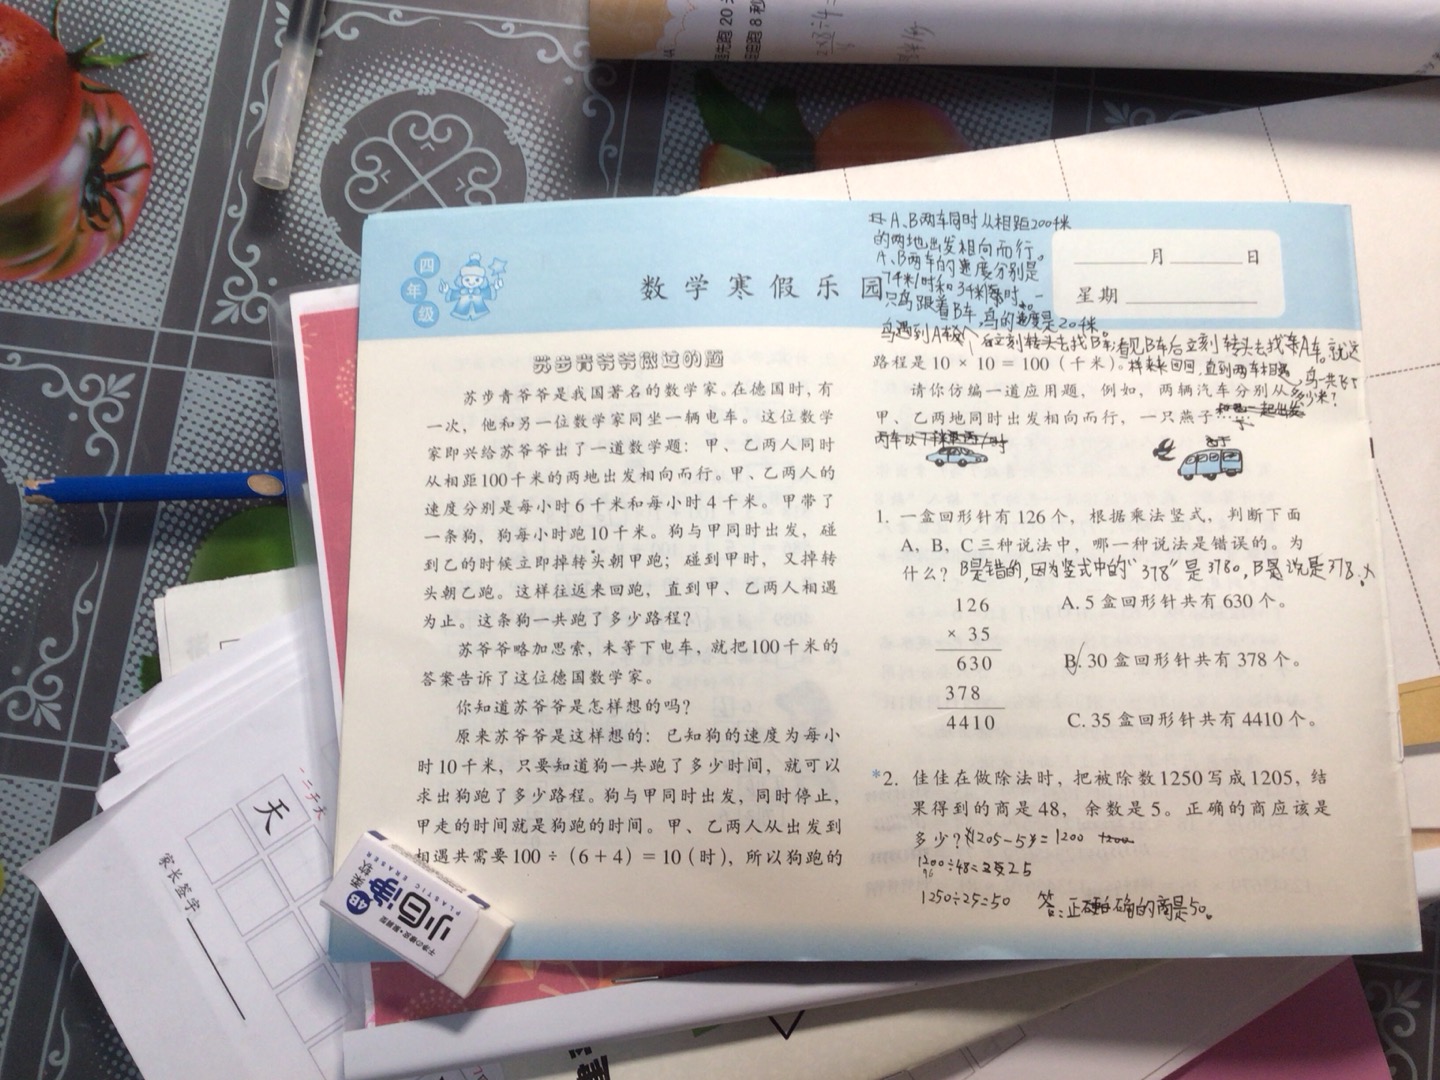 四年级
数学寒假乐园
A、B两车同时从相距200千米
的两地出发相向而行。
A、B两车的速度分别是
7千米/时和3千米/时,一
只鸟跟着B车,鸟的速度是20千米。
鸟遇到A
后立刻转头去找B车,看见B车后立刻转头去找A车。就这
样来来回回,直到两车相遇,鸟一共飞了
多少米?
月 日
星期
苏步青爷爷做过的题
苏步青爷爷是我国著名的数学家。在德国时,有
一次,他和另一位数学家同坐一辆电车。这位数学
家即兴给苏爷爷出了一道数学题:甲、乙两人同时
从相距100千米的两地出发相向而行。甲、乙两人的
速度分别是每小时6千米和每小时4千米。甲带了
一条狗,狗每小时跑10千米。狗与甲同时出发,碰
到乙的时候立即掉转头朝甲跑;碰到甲时,又掉转
头朝乙跑。这样往返来回跑,直到甲、乙两人相遇
为止。这条狗一共跑了多少路程?
苏爷爷略加思索,未等下电车,就把100千米的
答案告诉了这位德国数学家。
你知道苏爷爷是怎样想的吗?
原来苏爷爷是这样想的:已知狗的速度为每小
时10千米,只要知道狗一共跑了多少时间,就可以
求出狗跑了多少路程。狗与甲同时出发,同时停止,
甲走的时间就是狗跑的时间。甲、乙两人从出发到
相遇共需要100÷(6+4)=10(时),所以狗跑的
路程是10×10=100(千米)。
请你仿编一道应用题,例如,两辆汽车分别从
甲、乙两地同时出发相向而行,一只燕子
1. 一盒回形针有126个,根据乘法竖式,判断下面
A,B,C三种说法中,哪一种说法是错误的。为
什么?B是错的,因为竖式中的“378”是3780,B是说是378个
126
× 35
630
378
4410
A. 5盒回形针共有630个。
B. 30盒回形针共有378个。
C. 35盒回形针共有4410个。
*2. 佳佳在做除法时,把被除数1250写成1205,结
果得到的商是48,余数是5。正确的商应该是
多少?1205-5=1200
1200÷48=25
1250÷25=50 答:正确的商是50。
天
家长签字
小白净
4B
PLASTIC ERASER